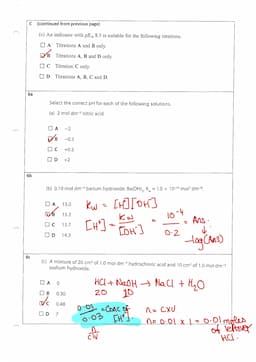 C (continued from previous page)
(c) An indicator with pKin 8.5 is suitable for the following titrations.
A Titrations A and B only
B Titrations A, B and D only
C Titration C only
D Titrations A, B, C and D
Select the correct pH for each of the following solutions.
(a) 2 mol dm⁻³ nitric acid
A -2
B -0.3
C +0.3
D +2
(b) 0.10 mol dm⁻³ barium hydroxide, Ba(OH)₂. Kw = 1.0 × 10⁻¹⁴ mol² dm⁻⁶.
A 13.0
B 13.3
C 13.7
D 14.3
Kw = [H⁺][OH⁻]
[H⁺] = Kw / [OH⁻] = 10⁻¹⁴ / 0.2 = Ans.
-log(Ans)
(c) A mixture of 20 cm³ of 1.0 mol dm⁻³ hydrochloric acid and 10 cm³ of 1.0 mol dm⁻³ sodium hydroxide.
A 0
B 0.30
C 0.48
D 7
HCl + NaOH → NaCl + H₂O
20 10
0.01 / 0.03 = Conc of [H⁺]
n = CxV
n = 0.01 x 1 = 0.01 moles
of
HCl.